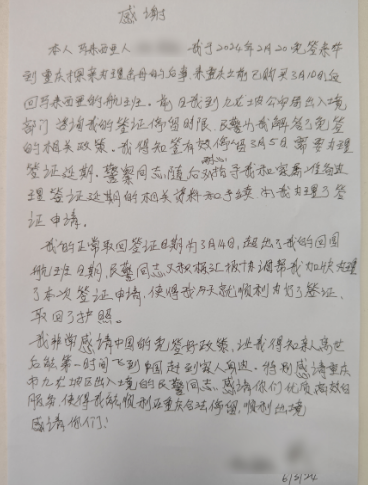 感谢
本人马来西亚人 我于2024年2月20免签来华
到重庆探亲办理岳母的后事,来重庆之前已购买3月10日返
回马来西亚的航班。前日我到九龙坡公安局出入境
部门咨询我的签证停留时限,民警为我解答了免签
的相关政策。我得知签有效停留3月5日需要办理
签证延期,警察同志随后耐心指导我和家属准备办
理签证延期的相关资料和手续,为我办理了签
证申请。
我的正常取回签证日期为3月14日,超出了我的回国
航班日期,民警同志又积极汇报协调帮我加快办理
了本次签证申请,使得我今天就顺利办好了签证、
取回了护照。
我非常感谢中国的免签好政策,让我得知亲人离世
后能第一时间飞到中国赶到家人身边。特别感谢重庆
市九龙坡区出入境的民警同志。感谢你们优质高效的
服务,使得我能顺利在重庆合法停留,顺利出境
感谢你们!
6/3/24